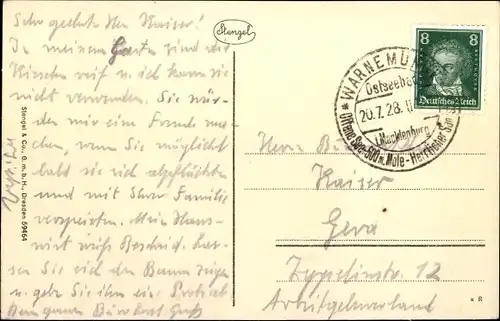 Sehr geehrter Herr Kaiser!
In meinem Garten sind die
Kirschen reif u. ich kann sie
nicht verwenden. Sie wür-
den mir eine Freude ma-
chen, wenn Sie möglichst
bald sie sich abpflückten
und mit Ihrer Familie
verspeisten. Mein Haus-
wirt weiß Bescheid. Las-
sen Sie sich den Baum zeigen
u. gebe Sie ihm eine
Dem ganzen Büro Gruß
Stengel
Stengel & Co., G. m. b. H., Dresden 59464
* WARNEMÜN
Ostseebad
20.7.28. 11
(Mecklenburg)
Offene See - 500 m. Mole - Herrlicher
8 8
Deutsches Reich
Herrn
Kaiser
Gera
Zeppelinstr. 12
Arbeitgeberverband
* R